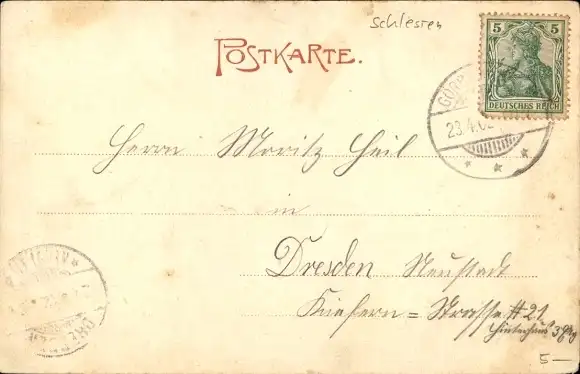 Schlesien
POSTKARTE.
5 5
DEUTSCHES REICH
GÖRB
23.4.02
Herrn Moritz Heil
in
Dresden Neustadt
Kiefern = Strasse # 21
Hinterhaus 3
DRESDEN
5-